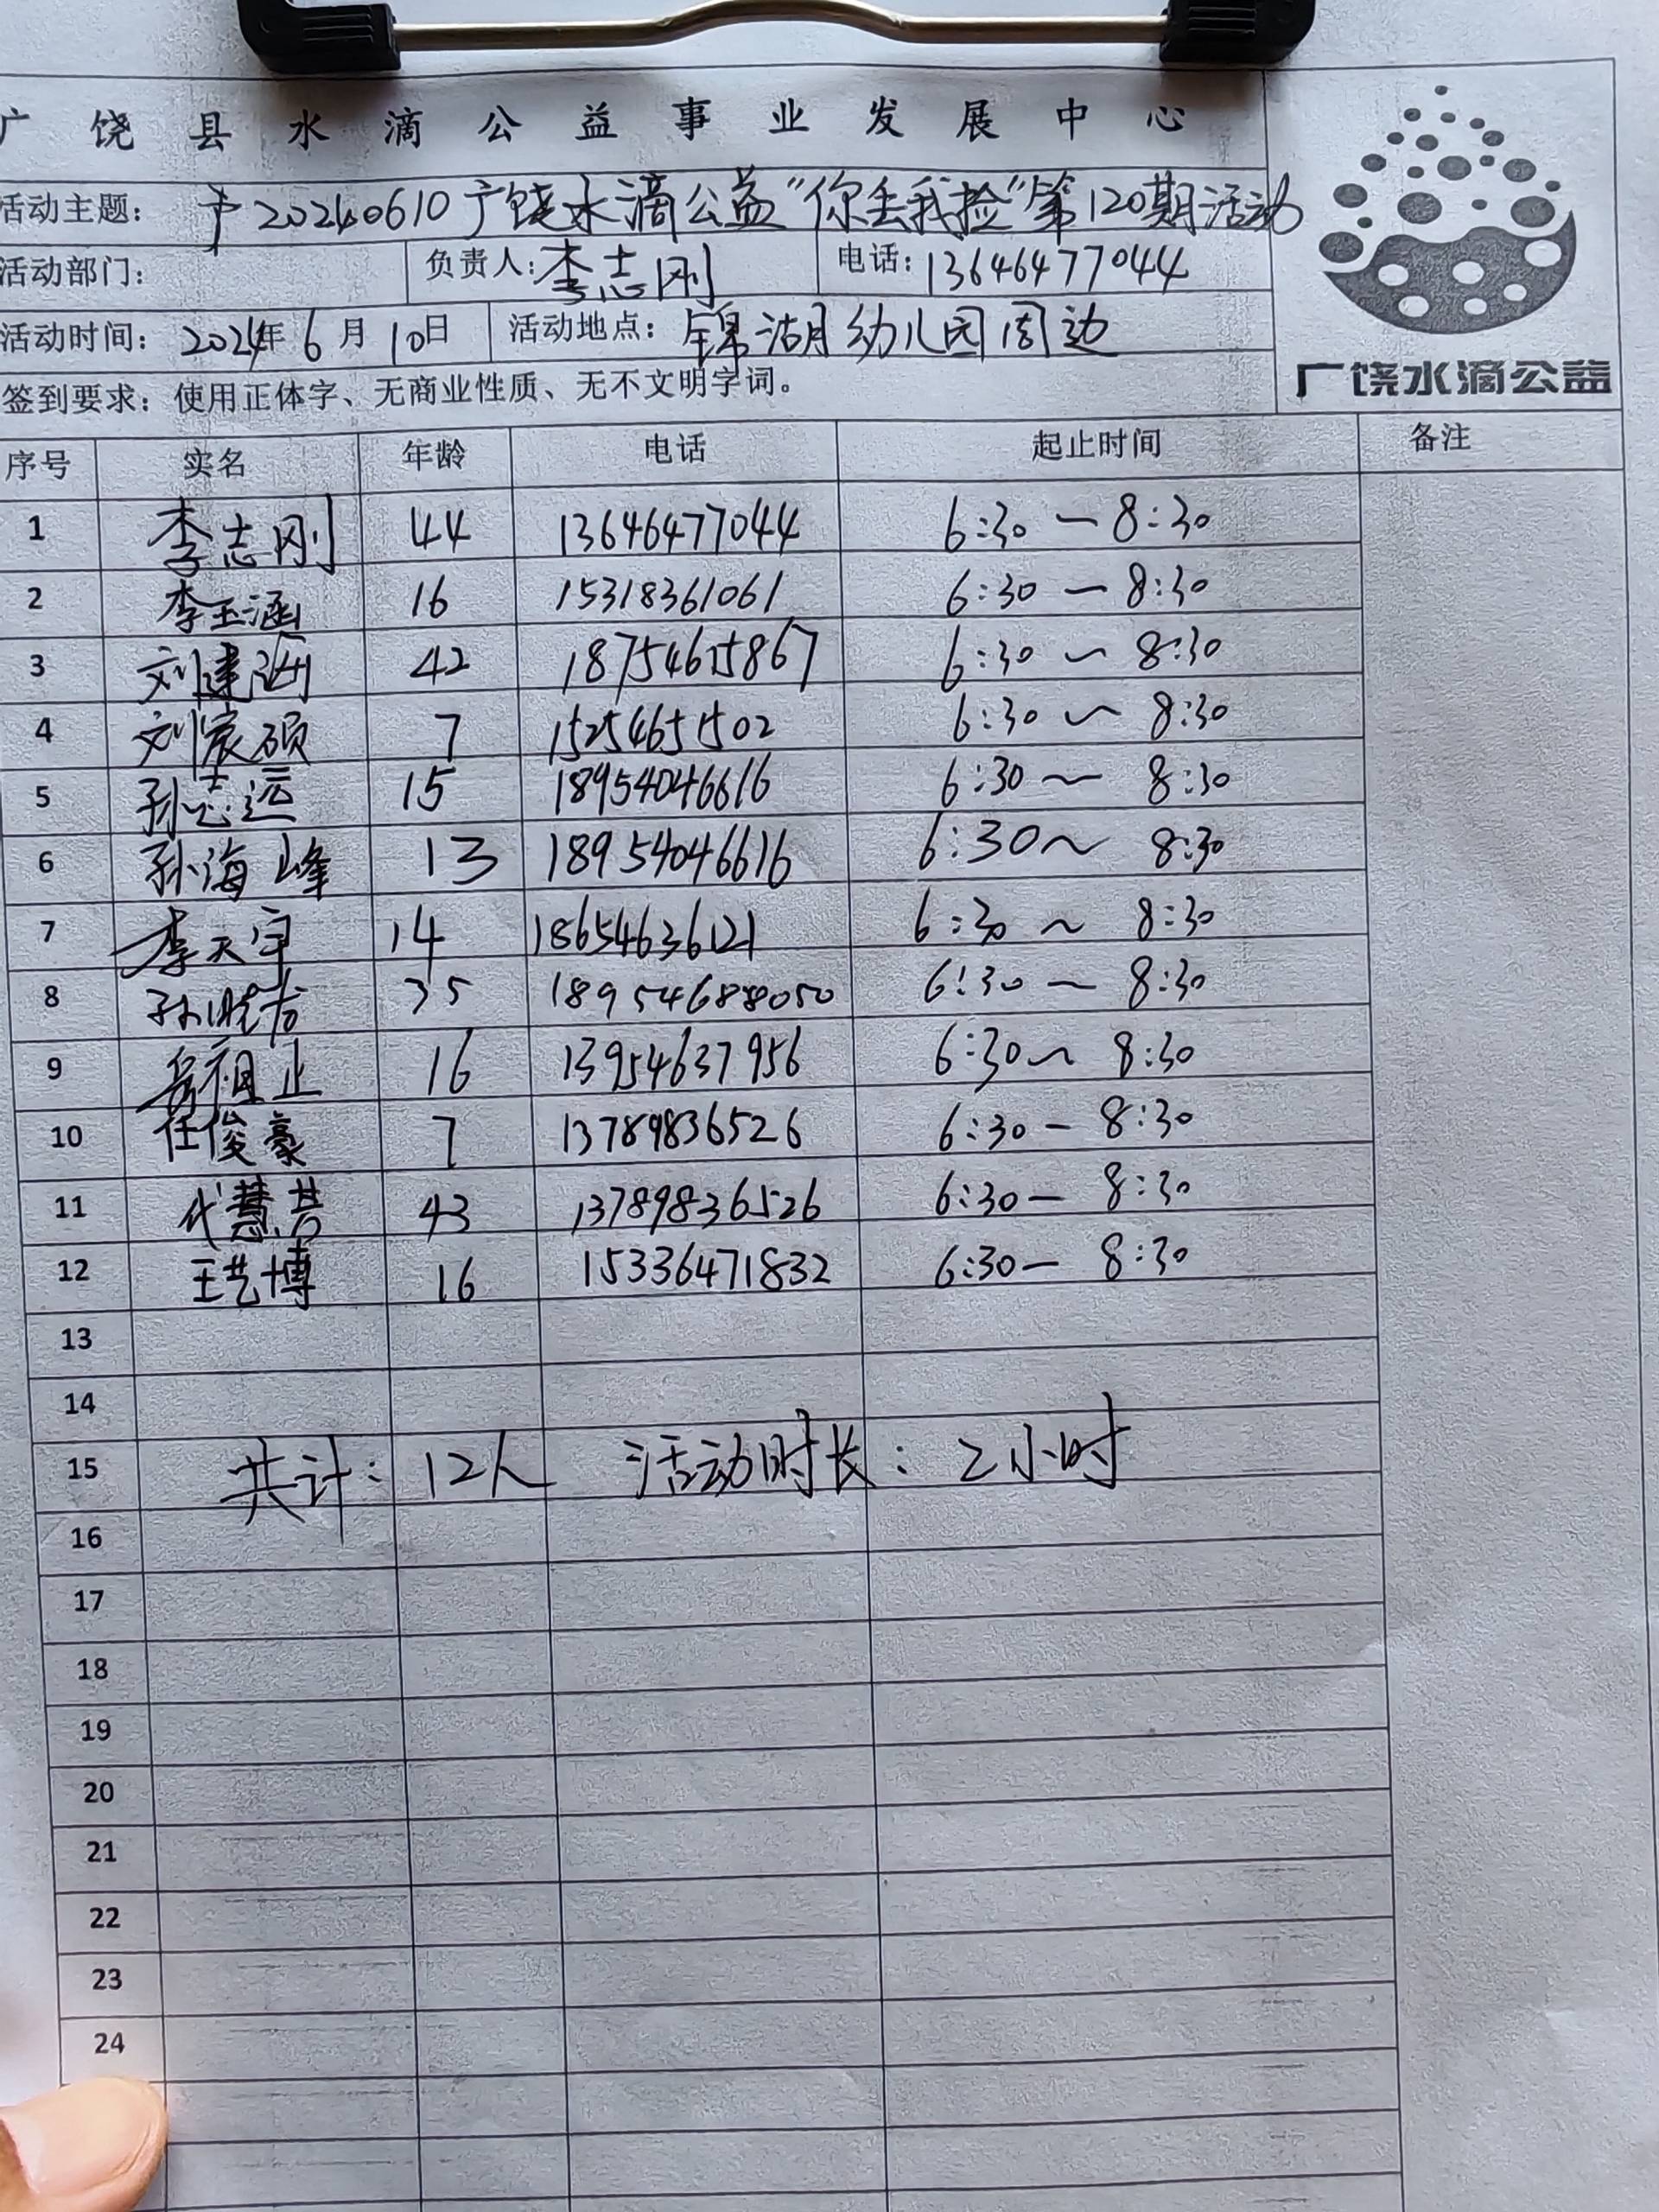 广饶县水滴公益事业发展中心
活动主题: 20240610广饶水滴公益"你丢我捡"第120期活动
活动部门: 负责人: 李志刚 电话: 13646477044
活动时间: 2024年 6 月 10日 活动地点: 锦湖幼儿园周边
广饶水滴公益
签到要求: 使用正体字、无商业性质、无不文明字词。
序号 实名 年龄 电话 起止时间 备注
1 李志刚 44 13646477044 6:30 — 8:30
2 李玉涵 16 15318361061 6:30 — 8:30
3 刘建 42 18754615867 6:30 ~ 8:30
4 刘宸硕 7 15254651502 6:30 ~ 8:30
5 孙志远 15 18954046616 6:30 ~ 8:30
6 孙海峰 13 18954046616 6:30~ 8:30
7 李天宇 14 18654636121 6:30 ~ 8:30
8 孙晓 35 6:30 ~ 8:30
9 岳祖正 16 13954637956 6:30~ 8:30
10 任俊豪 7 13789836526 6:30 — 8:30
11 代慧芳 43 13789836526 6:30 — 8:30
12 王艺博 16 15336471832 6:30 — 8:30
13
14
15 共计: 12人 活动时长: 2小时
16
17
18
19
20
21
22
23
24